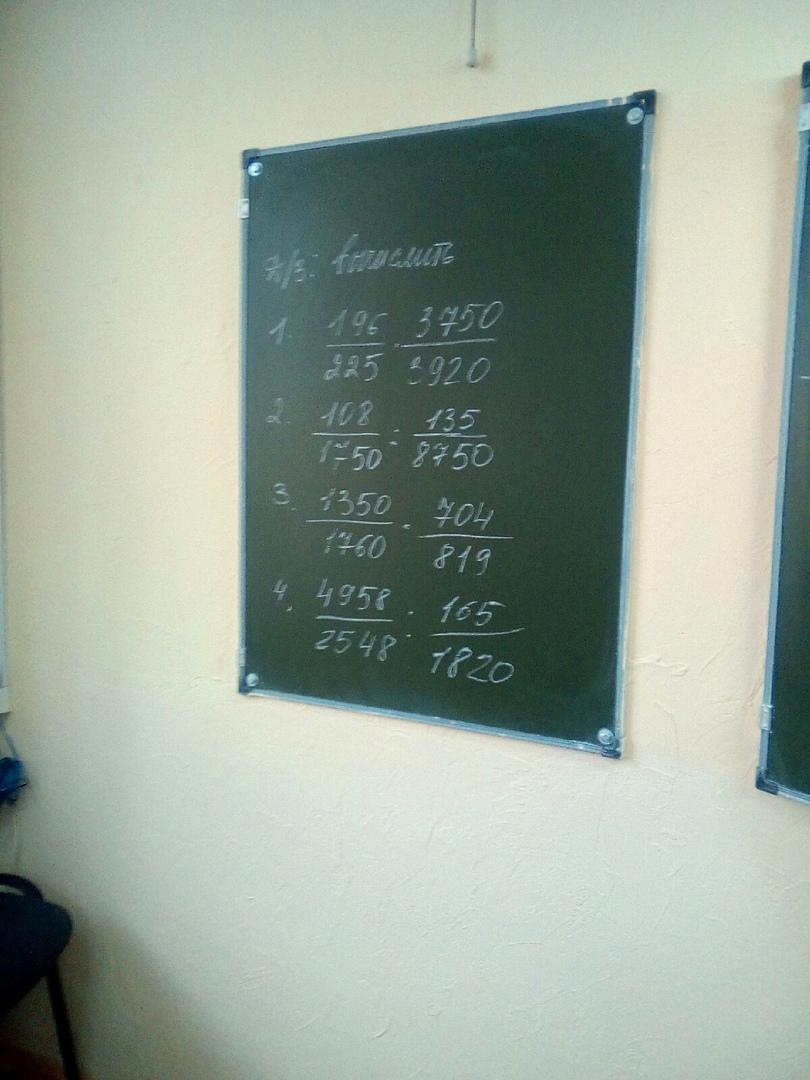 Д/з: вычислить
1. 196/225 · 3750/3920
2. 108/1750 : 135/8750
3. 1350/1760 · 704/819
4. 4958/2548 : 165/1820